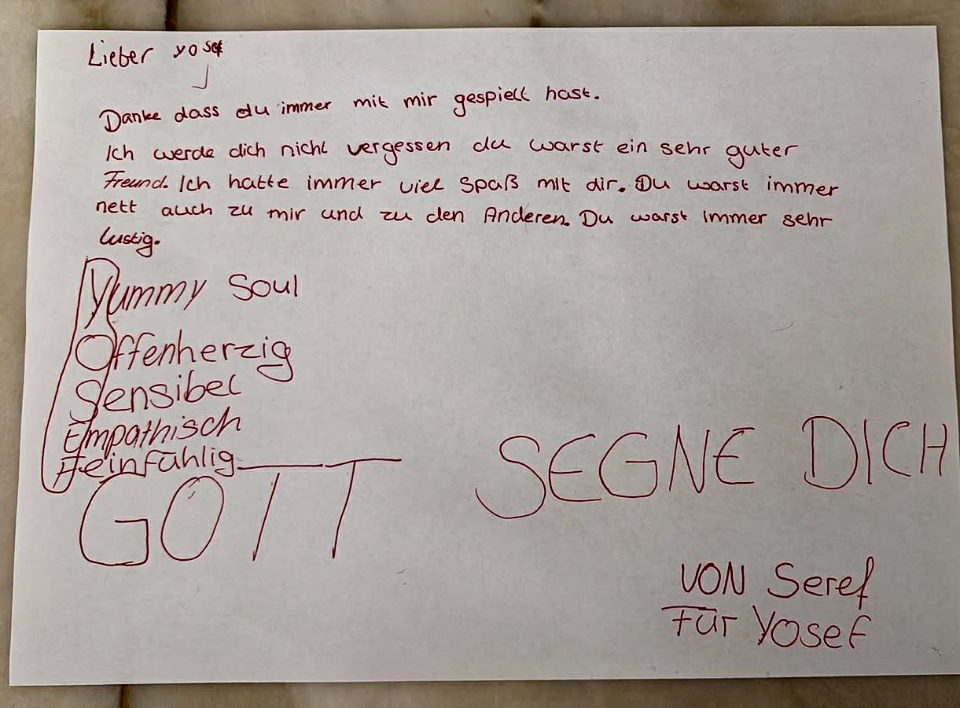 Lieber Yosef
Danke dass du immer mit mir gespielt hast.
Ich werde dich nicht vergessen du warst ein sehr guter
Freund. Ich hatte immer viel Spaß mit dir. Du warst immer
nett auch zu mir und zu den Anderen. Du warst immer sehr
lustig.
Yummy Soul
Offenherzig
Sensibel
Empathisch
Feinfühlig
GOTT SEGNE DICH
VON Seref
Für Yosef